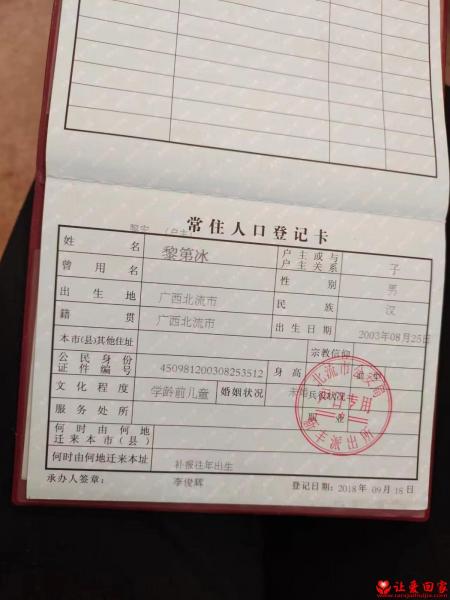 常住人口登记卡
姓名 黎第冰 户主或与户主关系 子
曾用名 性别 男
出生地 广西北流市 民族 汉
籍贯 广西北流市 出生日期 2003年08月25日
本市(县)其他住址 宗教信仰
公民身份证件编号 450981200308253512 身高
文化程度 学龄前儿童 婚姻状况 未婚 兵役状况
服务处所 职业
何时由何地迁来本市(县)
何时由何地迁来本址 补报往年出生
承办人签章: 李俊辉 登记日期: 2018年09月18日
北流市公安局
户口专用
派出所
让爱回家